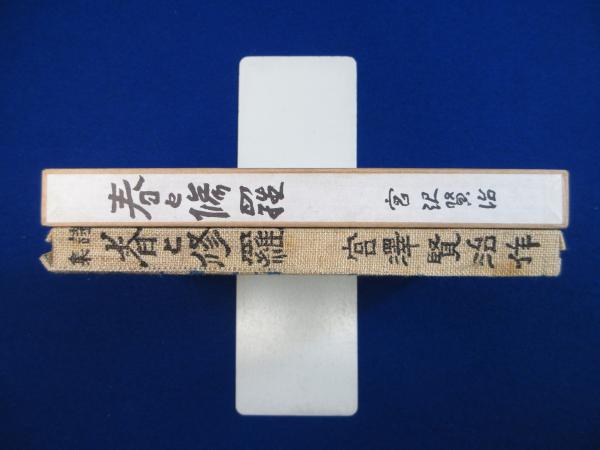 春と修羅 宮沢賢治
詩集 春と修羅 宮澤賢治作